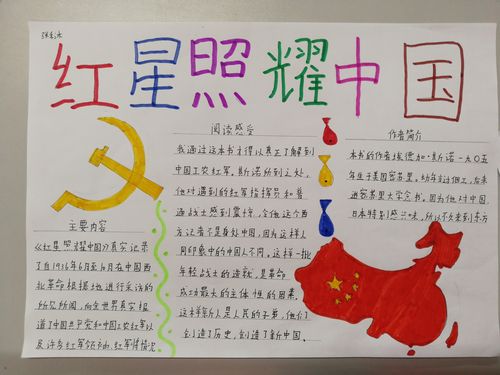 红星照耀中国
主要内容
《红星照耀中国》真实记录
了自1936年6月至10月在中国西
北革命根据地进行采访的
所见所闻,向全世界真实报
道了中国共产党和中国工农红军以
及许多红军领袖、红军将情况
阅读感受
我通过这本书才得以真正了解到
中国工农红军。斯诺所到之处,
他对遇到的红军指挥员和普
通战士感到震撼,令他这个西
方记者不是身处中国,因为这样人
同印象中的中国人不同。这样一批
年轻战士的造就,是革命
成功最大的主体性的因素,
这本书所人是人民的子弟,他们
创造了历史,创造了新中国。
作者简介
本书的作者埃德加·斯诺一九〇五
年生于美国密苏里,幼年
密苏里大学念书。因为他对中国,
日本特别感兴味,所以不久来到东方